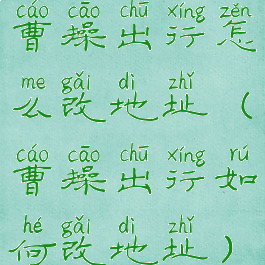 cáo cāo chū xíng zěn
曹操出行怎
me gǎi dì zhǐ
么改地址（
cáo cāo chū xíng rú
曹操出行如
hé gǎi dì zhǐ
何改地址）